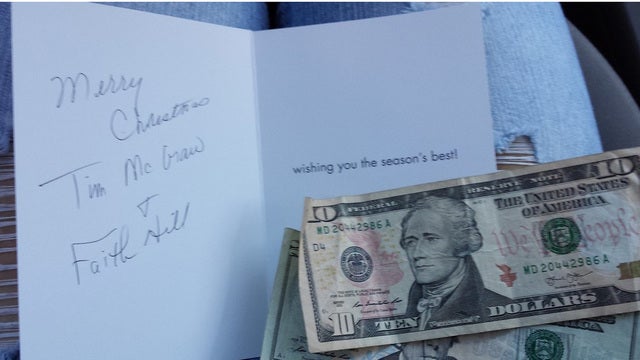 Merry
Christmas
Tim McGraw
+
Faith Hill
wishing you the season's best!
10
FEDERAL RESERVE NOTE
10
THE UNITED STATES
OF AMERICA
MD 20442986 A
D4
We the People
MD 20442986 A
10
TEN
DOLLARS